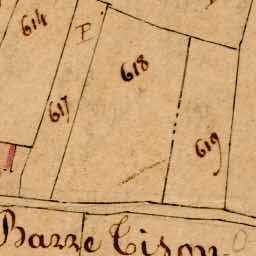 614
P
618
617
619
Barre Tison